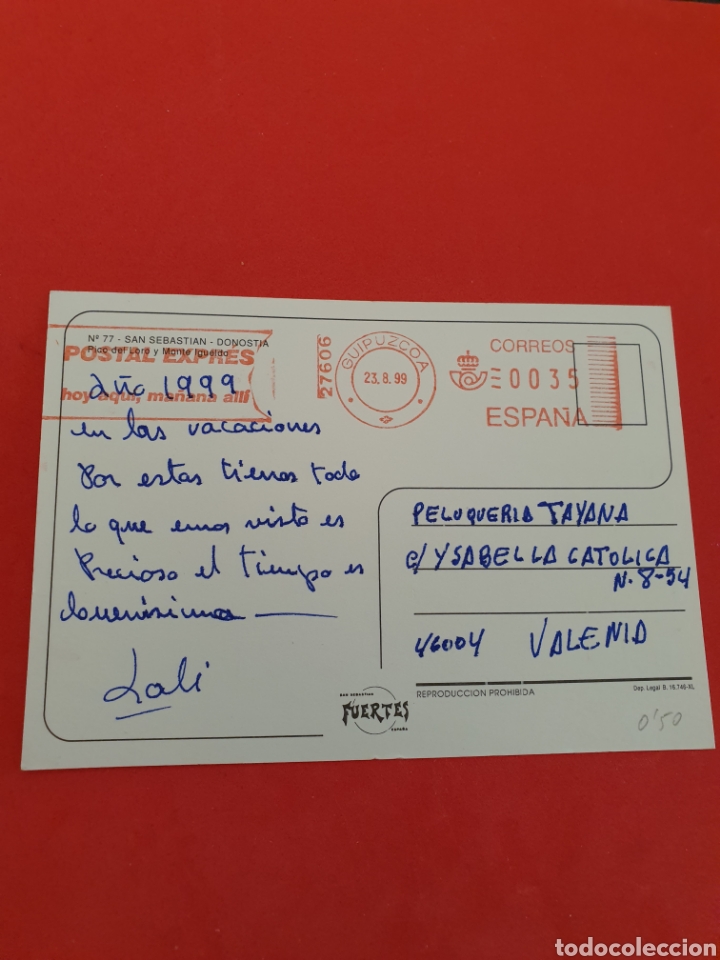 Nº 77 - SAN SEBASTIAN - DONOSTIA
Pico del Loro y Monte Igueldo
POSTAL EXPRES
hoy aquí, mañana allí
27606
GUIPUZCOA
23.8.99
CORREOS
0035
ESPAÑA
año 1999
en las vacaciones
Por estas tierras todo
lo que emos visto es
Precioso el tiempo es
buenisimo
Lali
PELUQUERIA TAYANA
c/ YSABEL LA CATOLICA
N. 8-54
46004 VALENIA
REPRODUCCION PROHIBIDA
Dep. Legal B. 16.746-XL
SAN SEBASTIAN
FUERTES
ESPAÑA
0'50
todocoleccion